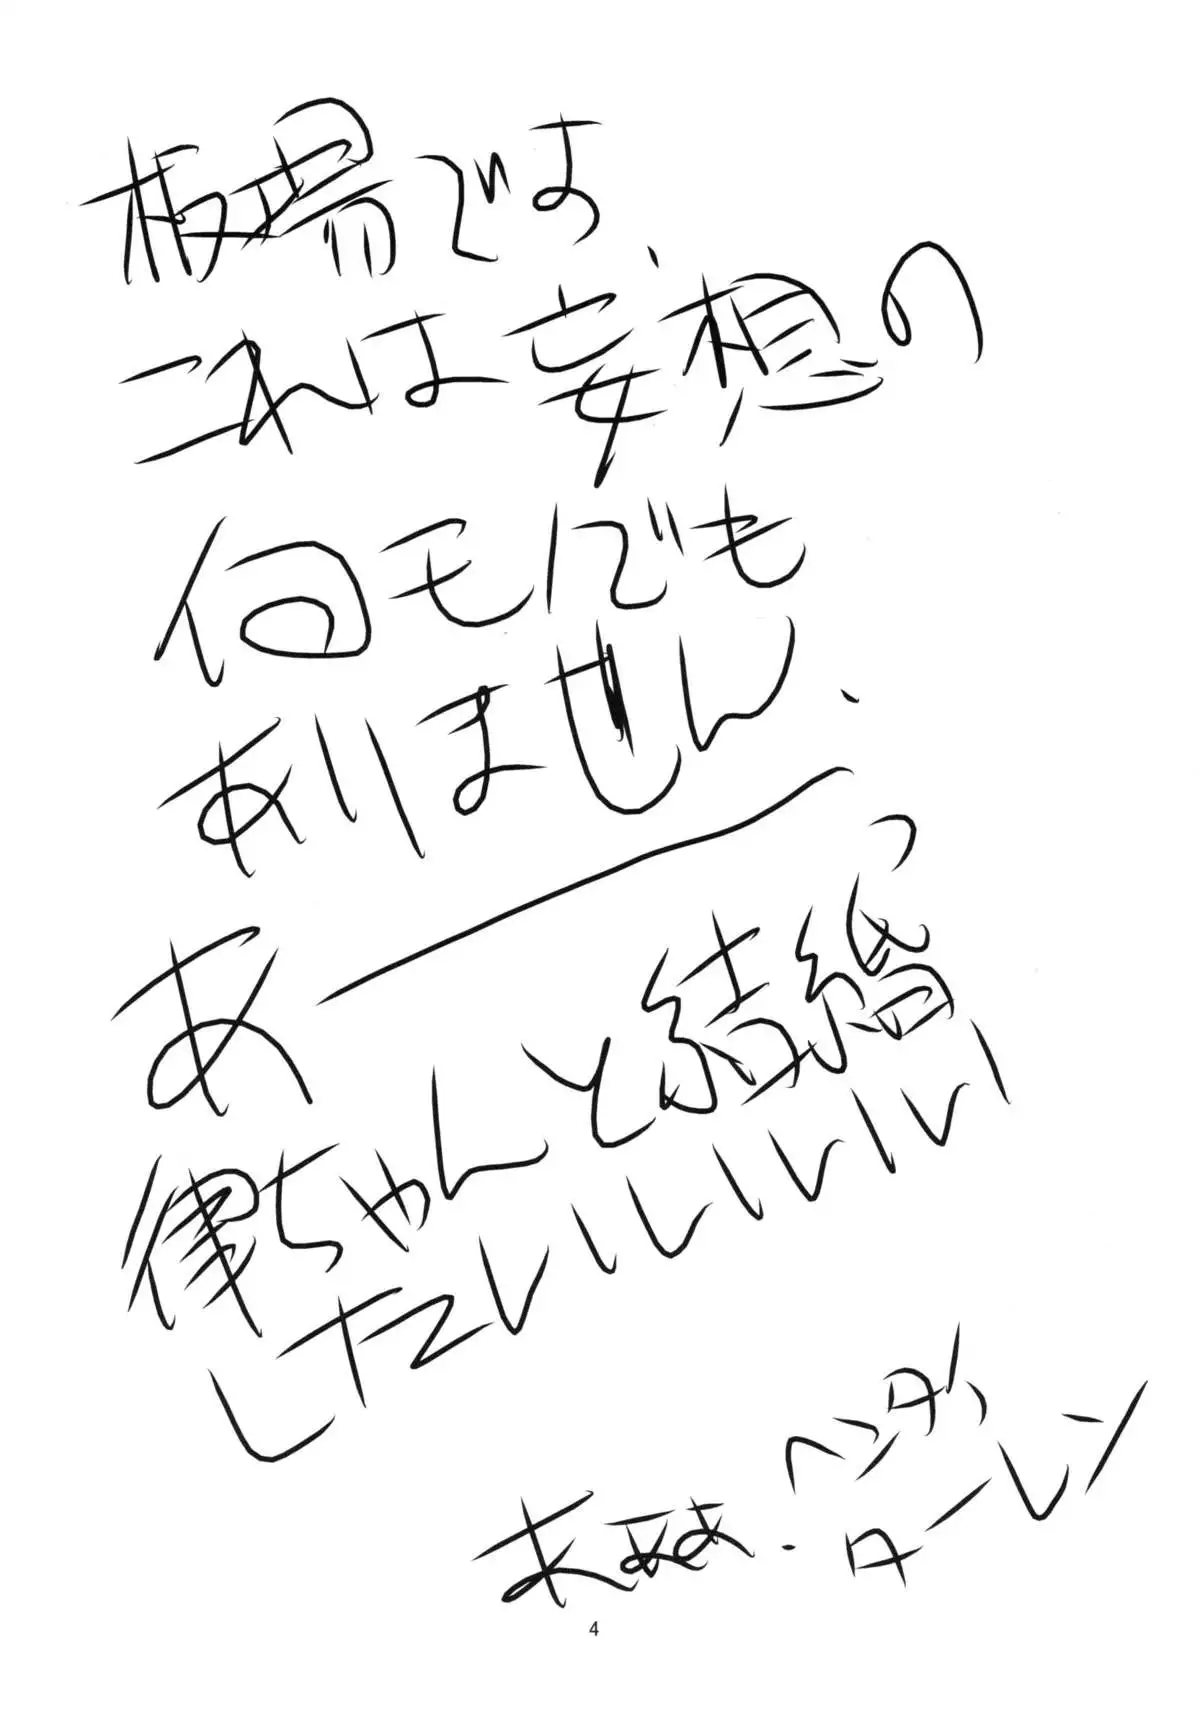 板場です、
これは妄想の
何モノでも
ありません、
あーっ
律ちゃんと結婚
したいいいいいい!
ヘンダーン
ターレン
4